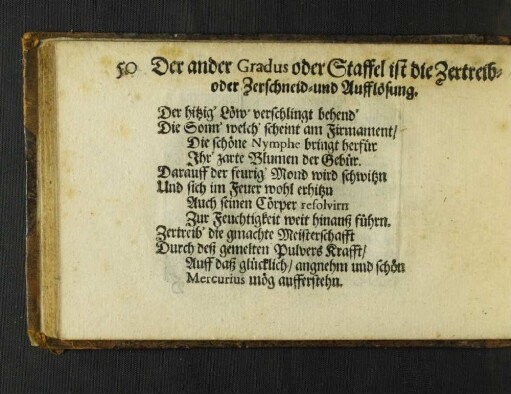 50 Der ander Gradus oder Staffel ist die Zertreib-
oder Zerschneid- und Aufflösung.
Der hitzig' Löw' verschlingt behend'
Die Sonn' welch' scheint am Firmament/
Die schöne Nymphe bringt herfür
Ihr' zarte Blumen der Gebür.
Darauff der feurig' Mond wird schwitzn
Und sich im Feuer wohl erhitzn
Auch seinen Cörper resolvirn
Zur Feuchtigkeit weit hinauß führn.
Zertreib' die gmachte Meisterschafft
Durch deß gemelten Pulvers Krafft/
Auff daß glücklich/ angnehm und schön
Mercurius mög aufferstehn.